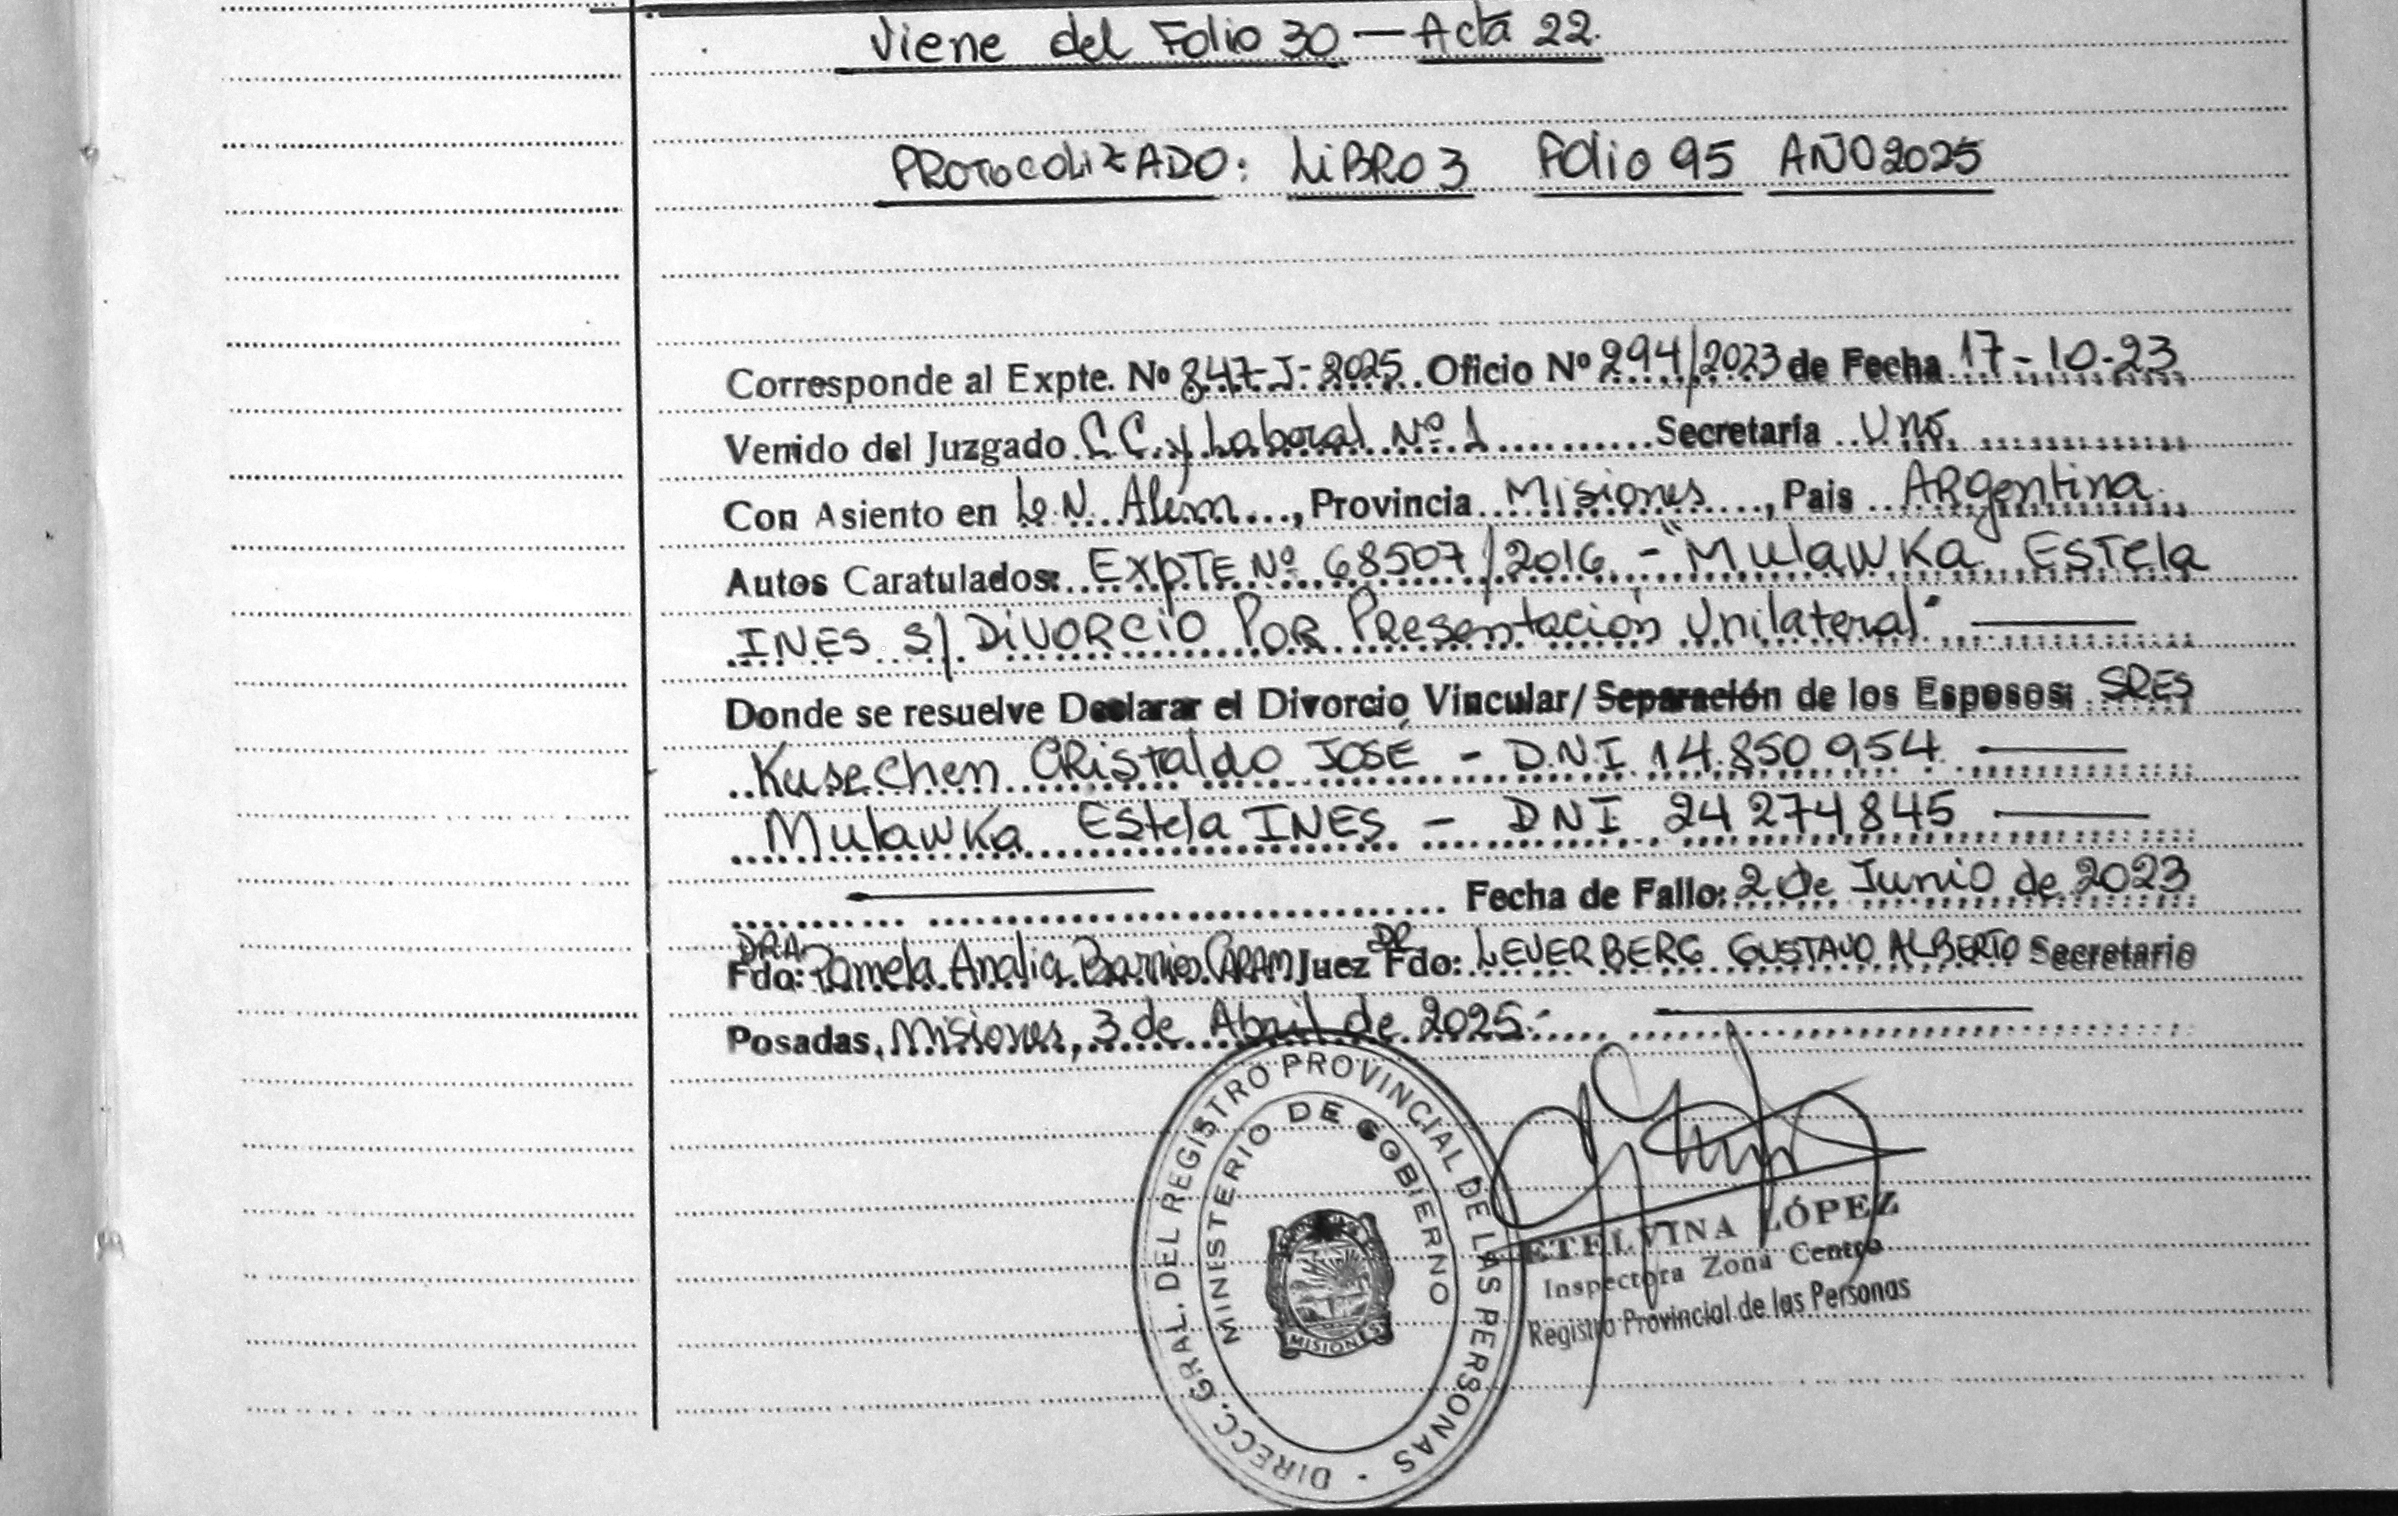 Viene del Folio 30 — Acta 22.
PROTOCOLIZADO: LIBRO 3 Folio 95 AÑO 2025
Corresponde al Expte. Nº 847-J-2025 Oficio Nº 294/2023 de Fecha 17-10-23
Venido del Juzgado C.C. y Laboral Nº 1 Secretaría Uno
Con Asiento en L. N. Alem, Provincia Misiones, Pais ARgentina
Autos Caratulados: EXPTE Nº 68507/2016 - "Mulawka ESTela
INES S/ DiVORCIO POR PResentación Unilateral"
Donde se resuelve Declarar el Divorcio Vincular/Separación de los Esposos: SRES
Kusechen CRistaldo JOSÉ - D.N.I 14.850 954
Mulawka Estela INES - DNI 24 274845
Fecha de Fallo: 2 de Junio de 2023
Fdo: DRA Pamela Analia Barrios CARAM Juez Fdo: DR LEVERBERG GUSTAVO ALBERTO Secretario
Posadas, Misiones, 3 de Abril de 2025.-
DIRECC. GRAL. DEL REGISTRO PROVINCIAL DE LAS PERSONAS
MINISTERIO DE GOBIERNO
MISIONES
ETELVINA LÓPEZ
Inspectora Zona Centro
Registro Provincial de las Personas